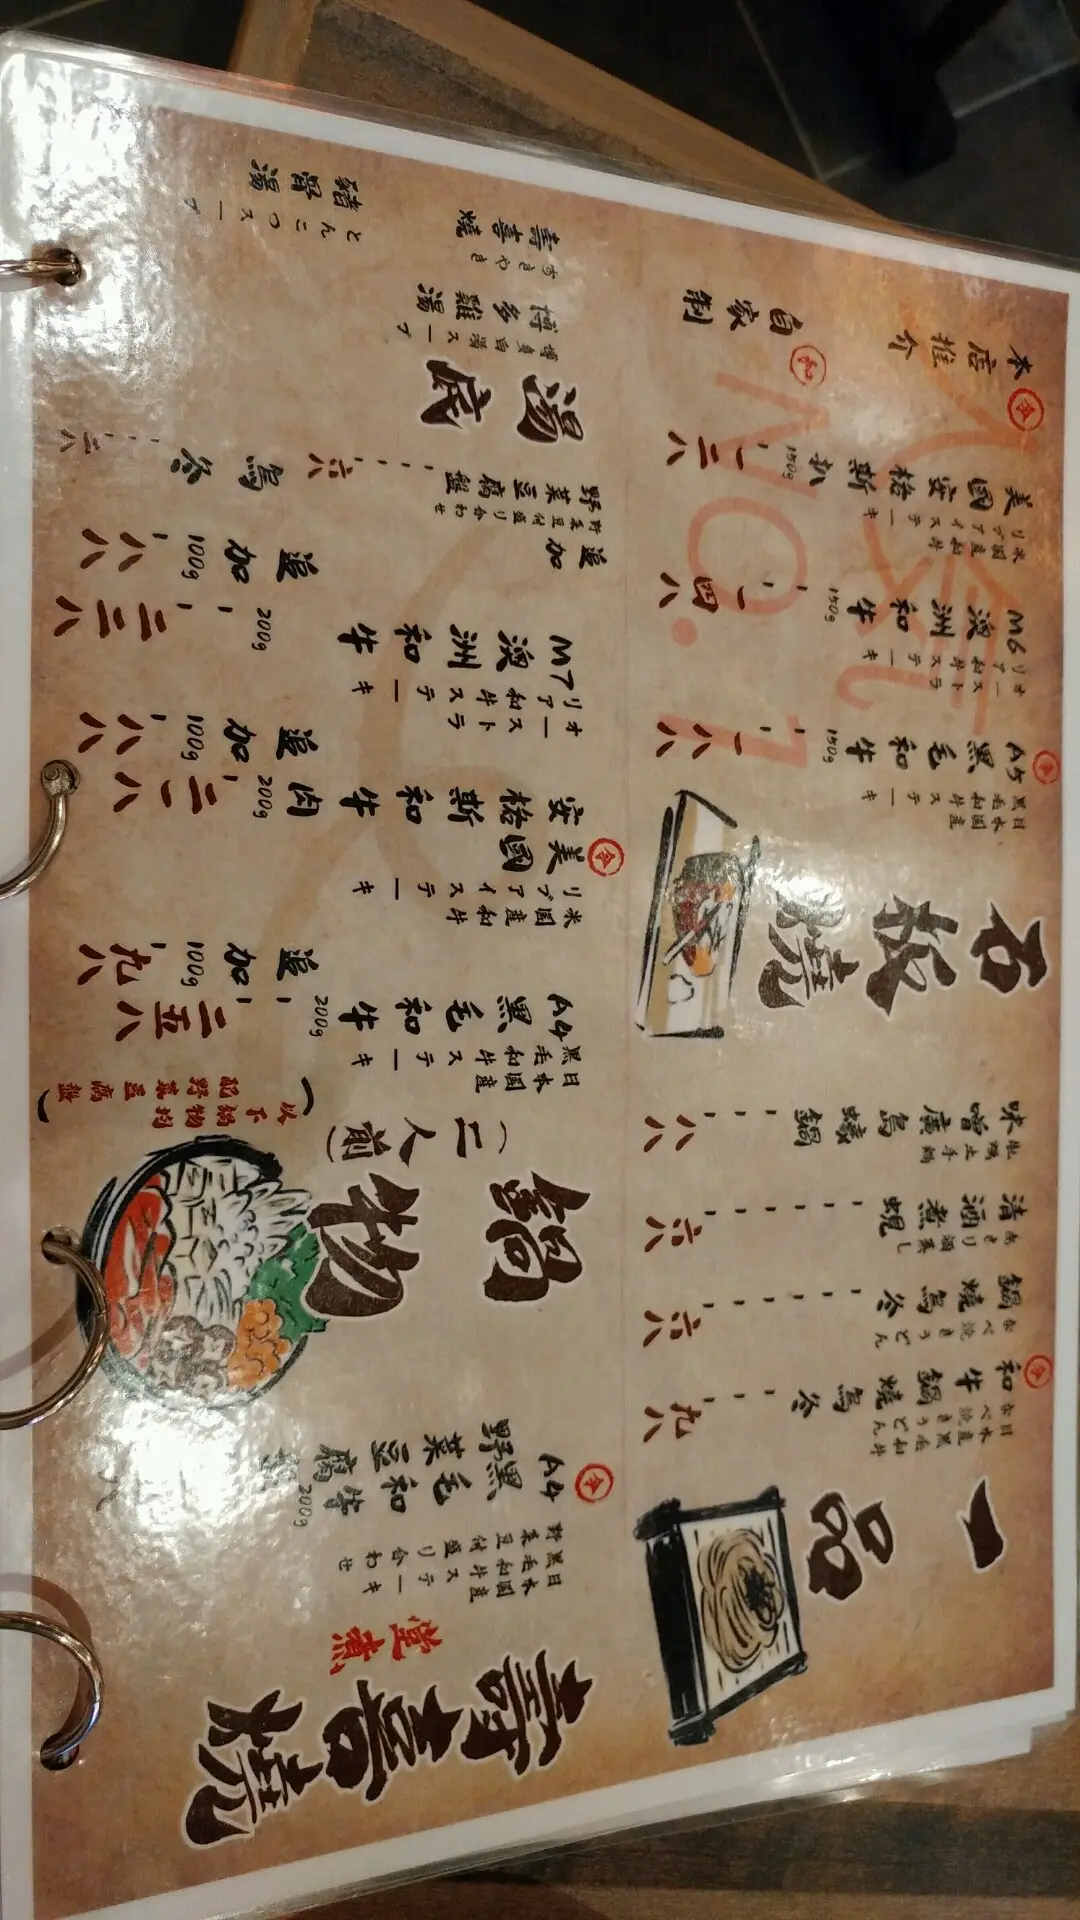 一品
和牛鍋燒烏冬 九八
なべ焼きうどん
鍋燒烏冬 六八
なべ焼きうどん
清酒煮蜆 六八
あさり酒蒸し
味噌廣島蠔鍋 八八
牡蠣土手鍋
石板燒
日本国産
黒毛和牛ステーキ
A5黑毛和牛 150g 一八八
オーストラ
リア和牛ステーキ
M6澳洲和牛 150g 一四八
米国産和牛
リブアイステーキ
美國安格斯扒 150g 一二八
本店推介
自家制
人気NO.1
壽喜燒
堂煮
日本国産
黒毛和牛ステーキ
野菜豆付盛り合わせ
A4黑毛和牛 200g
野菜豆腐
鍋物
(二人前)
(以下鍋物均
配野菜豆腐盤)
日本国産
黒毛和牛ステーキ
A4黑毛和牛 200g 二五八
追加 100g 九八
米国産和牛
リブアイステーキ
美國
安格斯和牛肉 200g 二一八
追加 100g 八八
オーストラ
リア和牛ステーキ
M7澳洲和牛 200g 二二八
追加 100g 八八
追加
野菜豆付盛り合わせ
野菜豆腐盤 六八
烏冬 二八
湯底
博多雞湯
壽喜燒
すきやき
豬骨湯
とんこつスープ